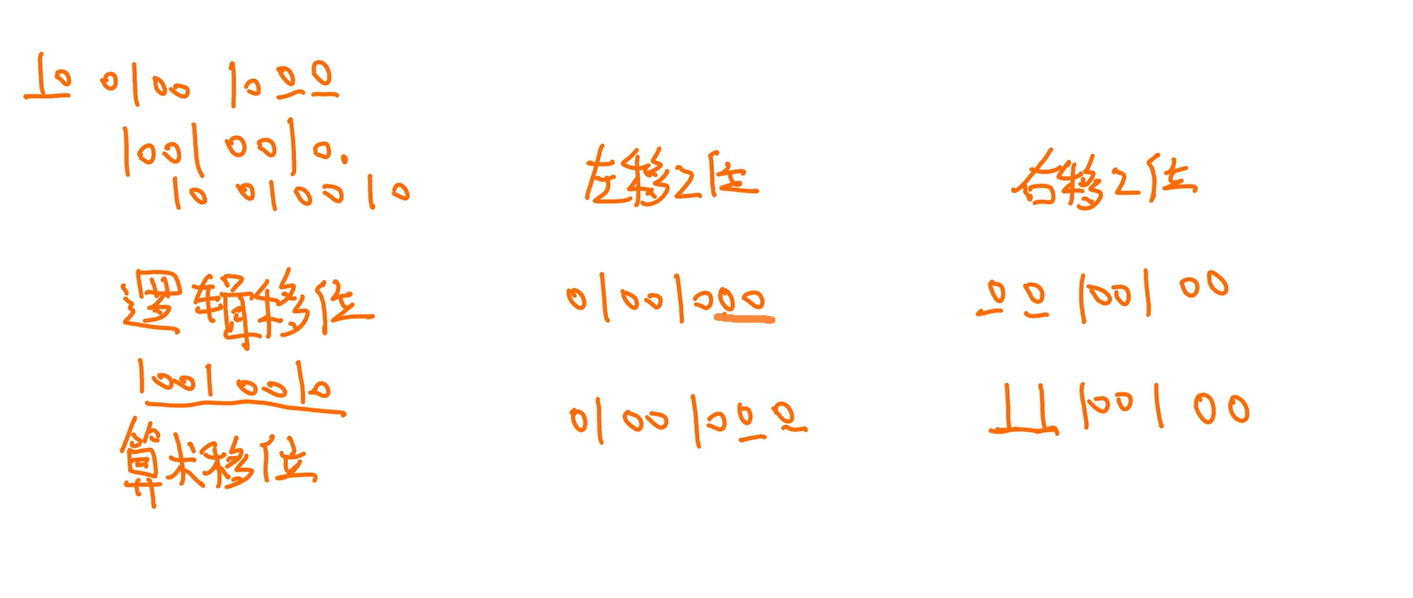 10 0100 1000
1001 0010.
10 010010
左移2位 右移2位
逻辑移位 01001000 00 1001 00
1001 0010
算术移位 0100 1000 11 1001 00